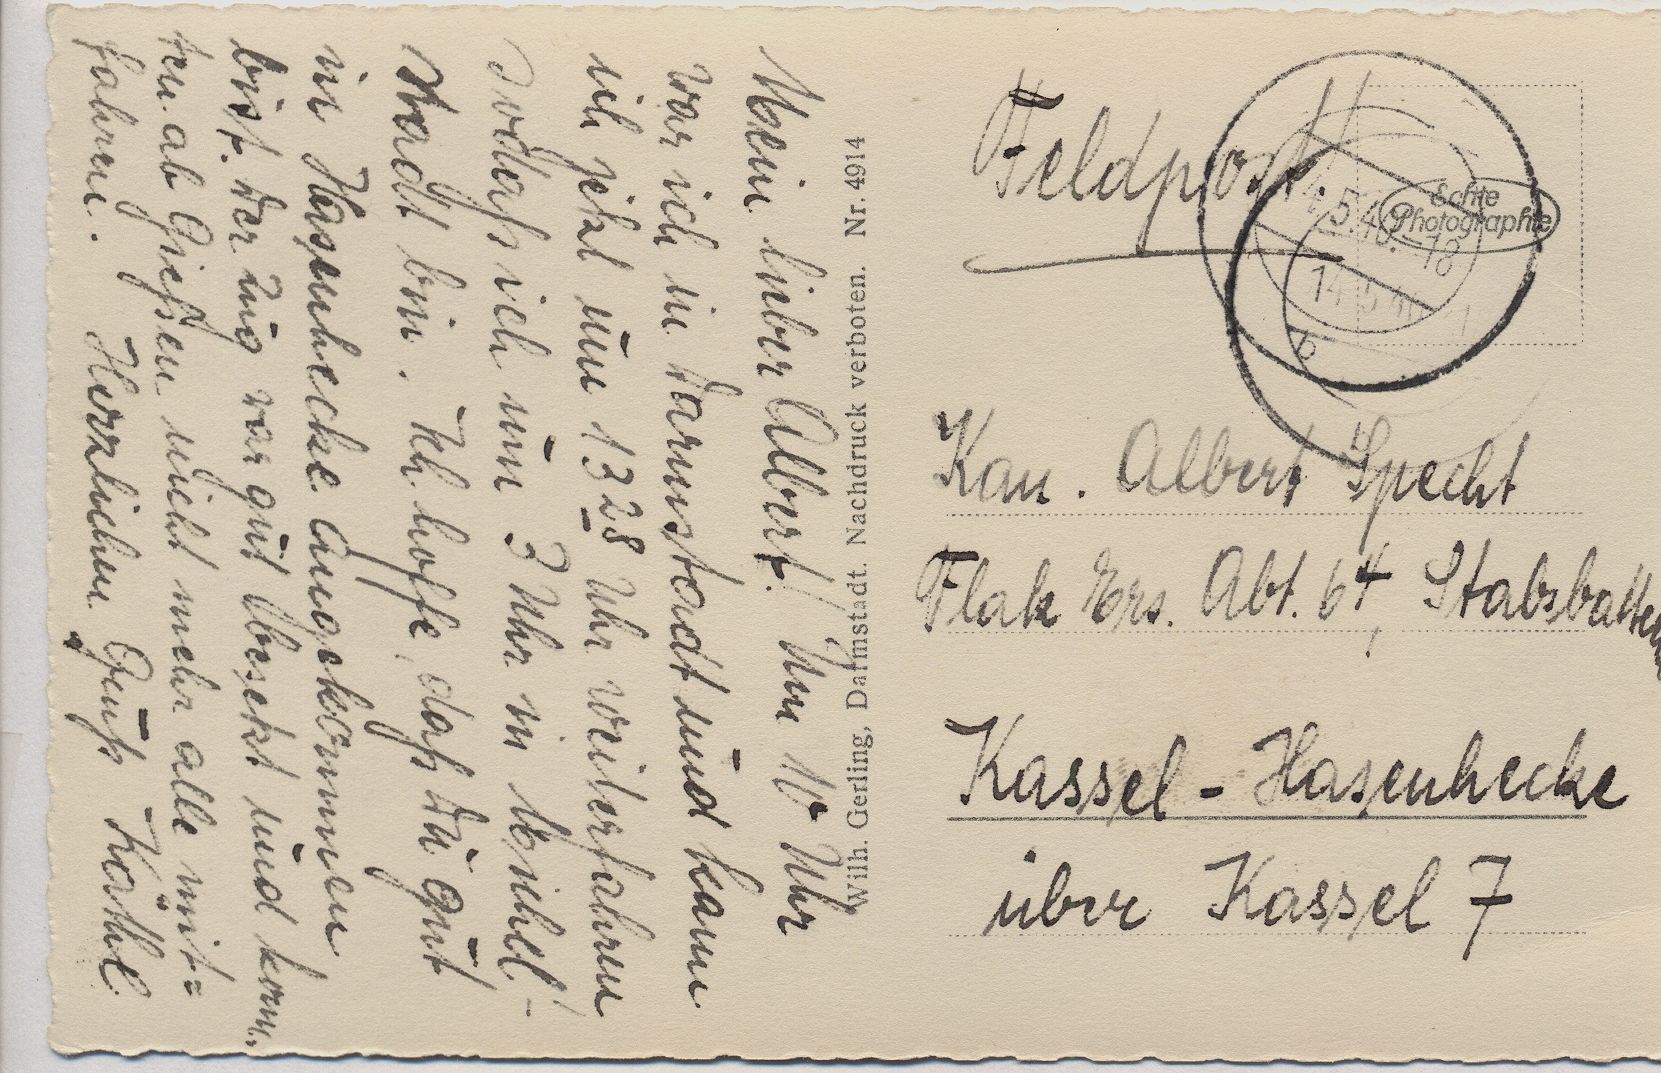 Mein lieber Albert! Um 10 Uhr
war ich in Darmstadt und kann
ich jetzt um 13 28 Uhr weiterfahren
sodaß ich um 3 Uhr in
stadt bin. Ich hoffe, daß Du gut
in Hasenhecke angekommen
bist. Der Zug war gut besetzt und konn-
ten ab Gießen nicht mehr alle mit=
fahren. Herzlichen Gruß Käthe
Wilh. Gerling, Darmstadt. Nachdruck verboten. Nr. 4914
Feldpost!
Echte
Photographie
Kan. Albert Specht
Flak Ers. Abt. 64, Stabsbatterie
Kassel - Hasenhecke
über Kassel 7